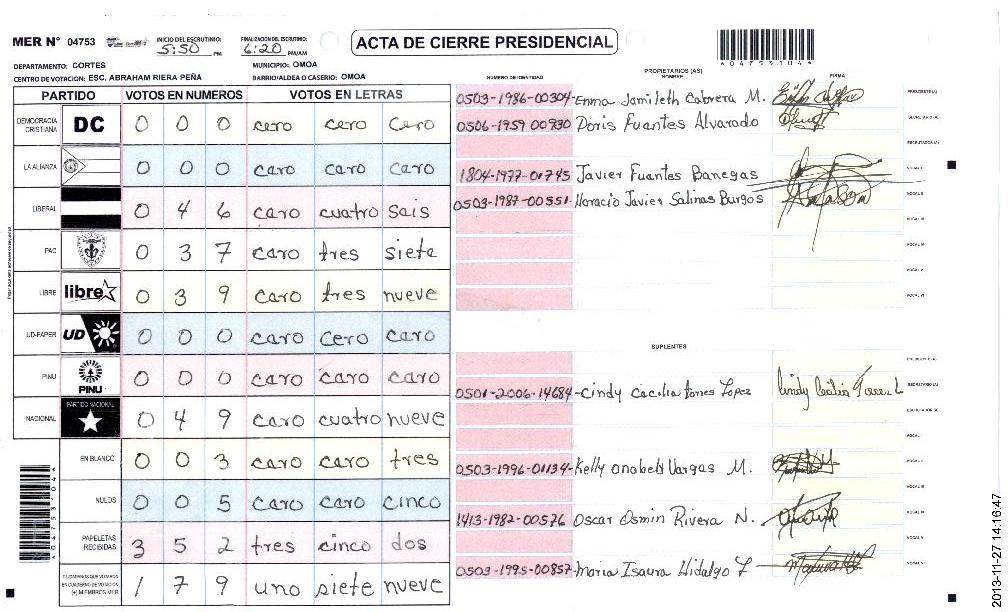 MER N° 04753 INICIO DEL ESCRUTINIO: 5:50 PM FINALIZACION DEL ESCRUTINIO: 6:20 PM/AM
ACTA DE CIERRE PRESIDENCIAL
DEPARTAMENTO: CORTES MUNICIPIO: OMOA
CENTRO DE VOTACION: ESC. ABRAHAM RIERA PEÑA BARRIO/ALDEA O CASERIO: OMOA
PARTIDO VOTOS EN NUMEROS VOTOS EN LETRAS
DEMOCRACIA CRISTIANA DC 0 0 0 cero cero cero
LA ALIANZA 0 0 0 caro caro caro
LIBERAL 0 4 6 caro cuatro sais
PAC 0 3 7 caro tres siete
LIBRE libre 0 3 9 caro tres nueve
UD-FAPER UD 0 0 0 caro cero caro
PINU PINU 0 0 0 caro caro caro
NACIONAL PARTIDO NACIONAL 0 4 9 caro cuatro nueve
EN BLANCO 0 0 3 caro caro tres
NULOS 0 0 5 caro caro cinco
PAPELETAS RECIBIDAS 3 5 2 tres cinco dos
CIUDADANOS QUE VOTARON EN CUADERNO DE VOTACION (+) MIEMBROS MER 1 7 9 uno siete nueve
04753104
NUMERO DE IDENTIDAD PROPIETARIOS (AS) NOMBRE FIRMA
0503-1986-00304- Enma Jamileth Cabrera M. PRESIDENTE(A)
0506-1959 00930 Doris Fuentes Alvarado SECRETARIO(A)
ESCRUTADOR(A)
1804-1977-01745 Javier Fuentes Banegas VOCAL I
0503-1987-00551- Horacio Javier Salinas Burgos VOCAL II
VOCAL III
VOCAL IV
VOCAL V
VOCAL VI
SUPLENTES
PRESIDENTE(A)
0501-2006-14684 -Cindy Cacilia torres Lopez Cindy Cecilia Torres L SECRETARIO(A)
ESCRUTADOR(A)
VOCAL I
0503-1996-01134- Kelly Onabeli Vargas M. VOCAL II
VOCAL III
1413-1982-00576 Oscar Osmin Rivera N. VOCAL IV
VOCAL V
0503-1995-00857- Maria Isaura Hidalgo F VOCAL VI
04753104
2013-11-27 14:16:47